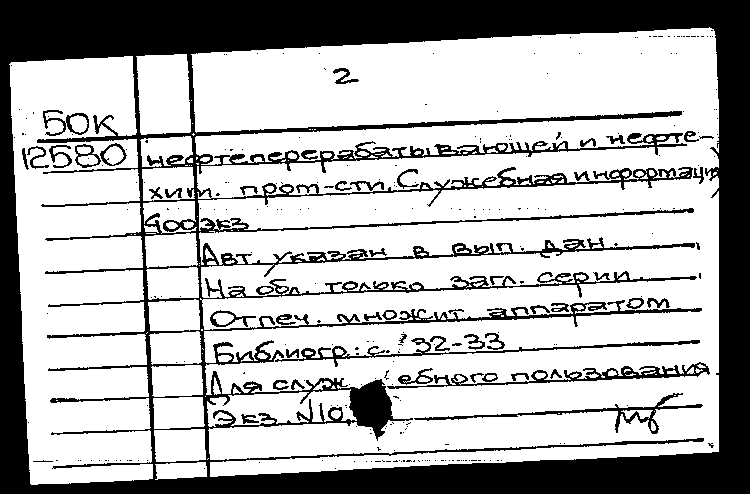 2
50К
12580 нефтеперерабатывающей и нефте-
хим. пром-сти. Служебная информация)
400экз.
Авт. указан в вып. дан.
На обл. только загл. серии.
Отпеч. множит. аппаратом
Библиогр.: с. 32-33.
Для служ ебного пользования.
Экз. №10.